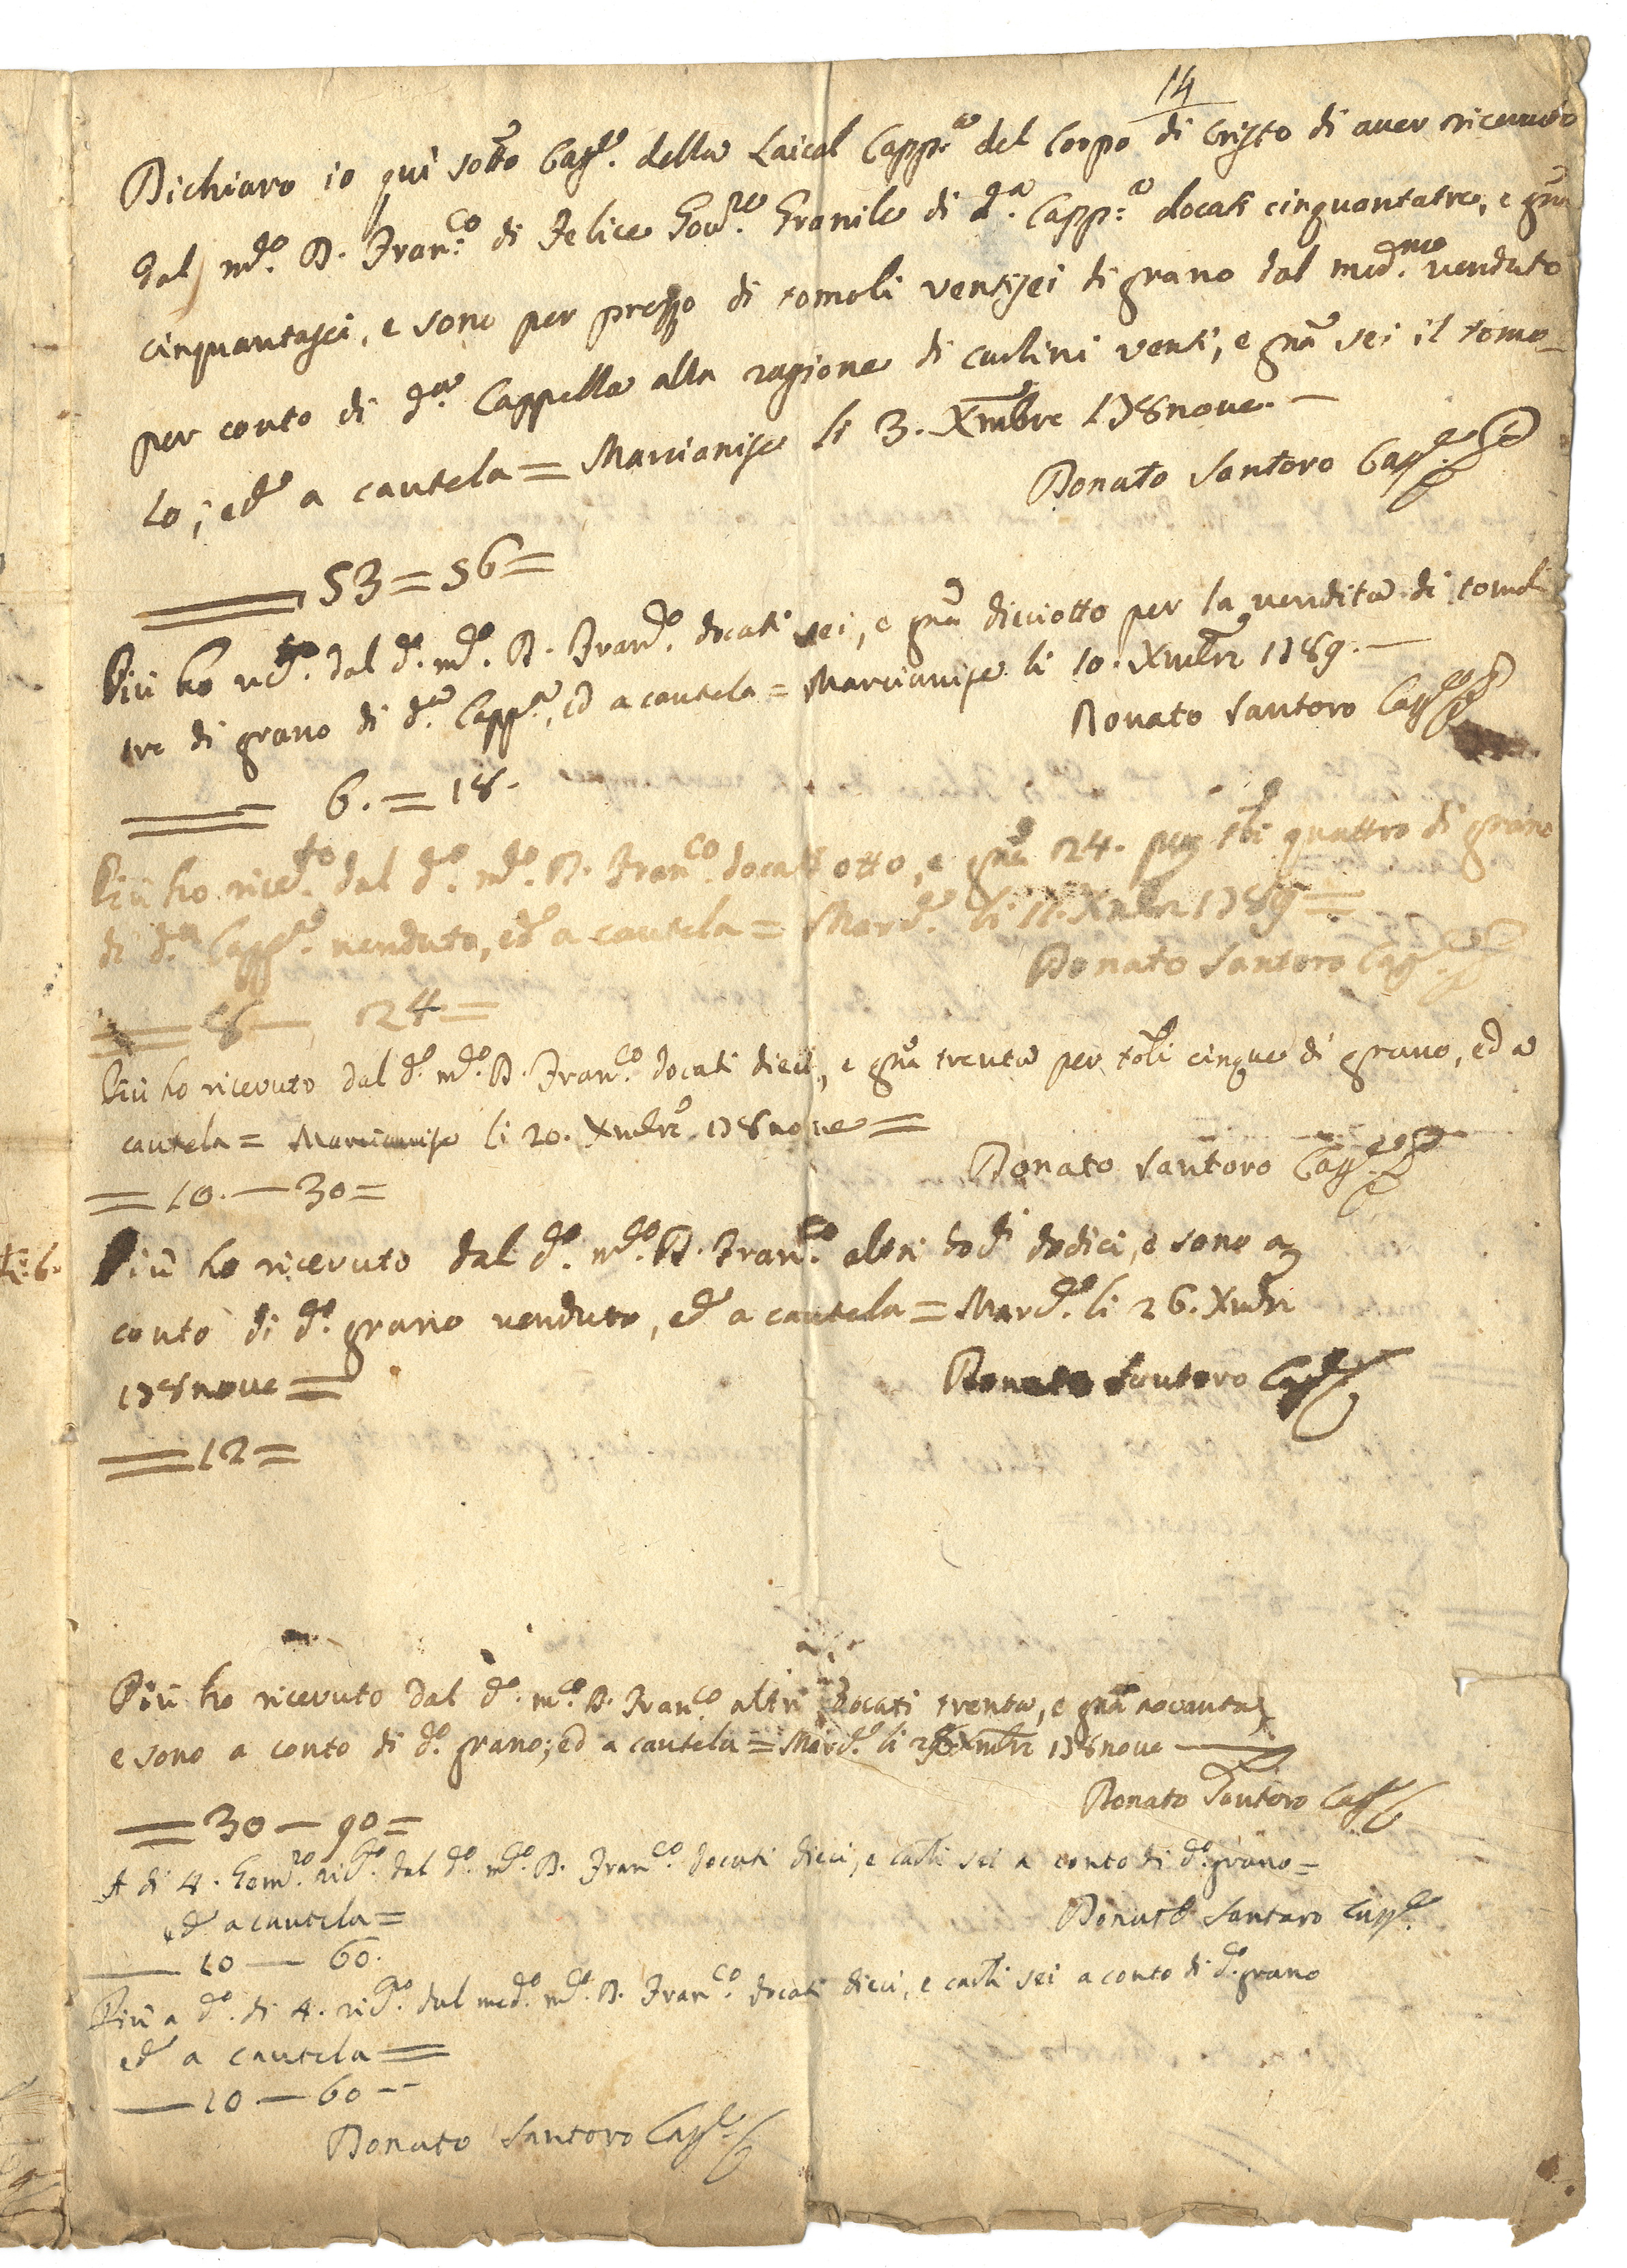 14
Dichiaro io quì sotto Cass.e della Laical Capp.a del Corpo di Cristo di aver ricevuto
dal m.co D. Fran.co di Felice Gov.re Granile di d.a Capp.a docati cinquantatre, e gna
cinquantasei, e sono per prezzo di tomoli ventisei di grano dal med.mo venduto
per conto di d.a Cappella alla ragione di carlini venti, e gna sei il tomo_
lo; ed a cautela = Marcianise li 3. Xmbre 178nove. —
Donato Santoro Cass.e
53 = 56 =
Più ho ric.to dal d.o m.co D. Fran.co docati sei, e gna dieciotto per la vendita di tomoli
tre di grano di d.a Capp.a, ed a cautela = Marcianise li 10. Xmbre 1789. —
Donato Santoro Cass.e
6. = 18.
Più ho rice.to dal d.o m.co D. Fran.co docati otto, e gna 24. per tli quattro di grano
di d.a Capp.a venduto, ed a cautela = Marc.e li 11. Xmbre 1789 =
Donato Santoro Cass.e
8 — 24 =
Più ho ricevuto dal d.o m.co D. Fran.co docati dieci, e gna trenta per toli cinque di grano, ed a
cautela = Marcianise li 20. Xmbre 178nove =
Donato Santoro Cass.e
= 10. — 30 =
Più ho ricevuto dal d.o m.co D. Fran.co altri do.ti dodici, e sono a
conto di d.o grano venduto, ed a cautela = Marc.e li 26. Xmbre
178nove =
Donato Santoro Cass.e
= 12 =
Più ho ricevuto dal d.o m.co D. Fran.co altri docati trenta, e gna novanta
e sono a conto di d.o grano; ed a cautela = Marc.e li Xmbre 178nove —
Donato Santoro Cass.e
= 30 — 90 =
A dì 4. Genn.ro ric.to dal d.o m.co D. Fran.co docati dieci, e carli sei a conto di d.o grano =
ed a cautela =
Donato Santoro Cass.e
— 10 — 60.
Più a d.o dì 4. ric.to dal med.o m.co D. Fran.co docati dieci, e carli sei a conto di d.o grano
ed a cautela =
— 10 — 60 --
Donato Santoro Cass.e